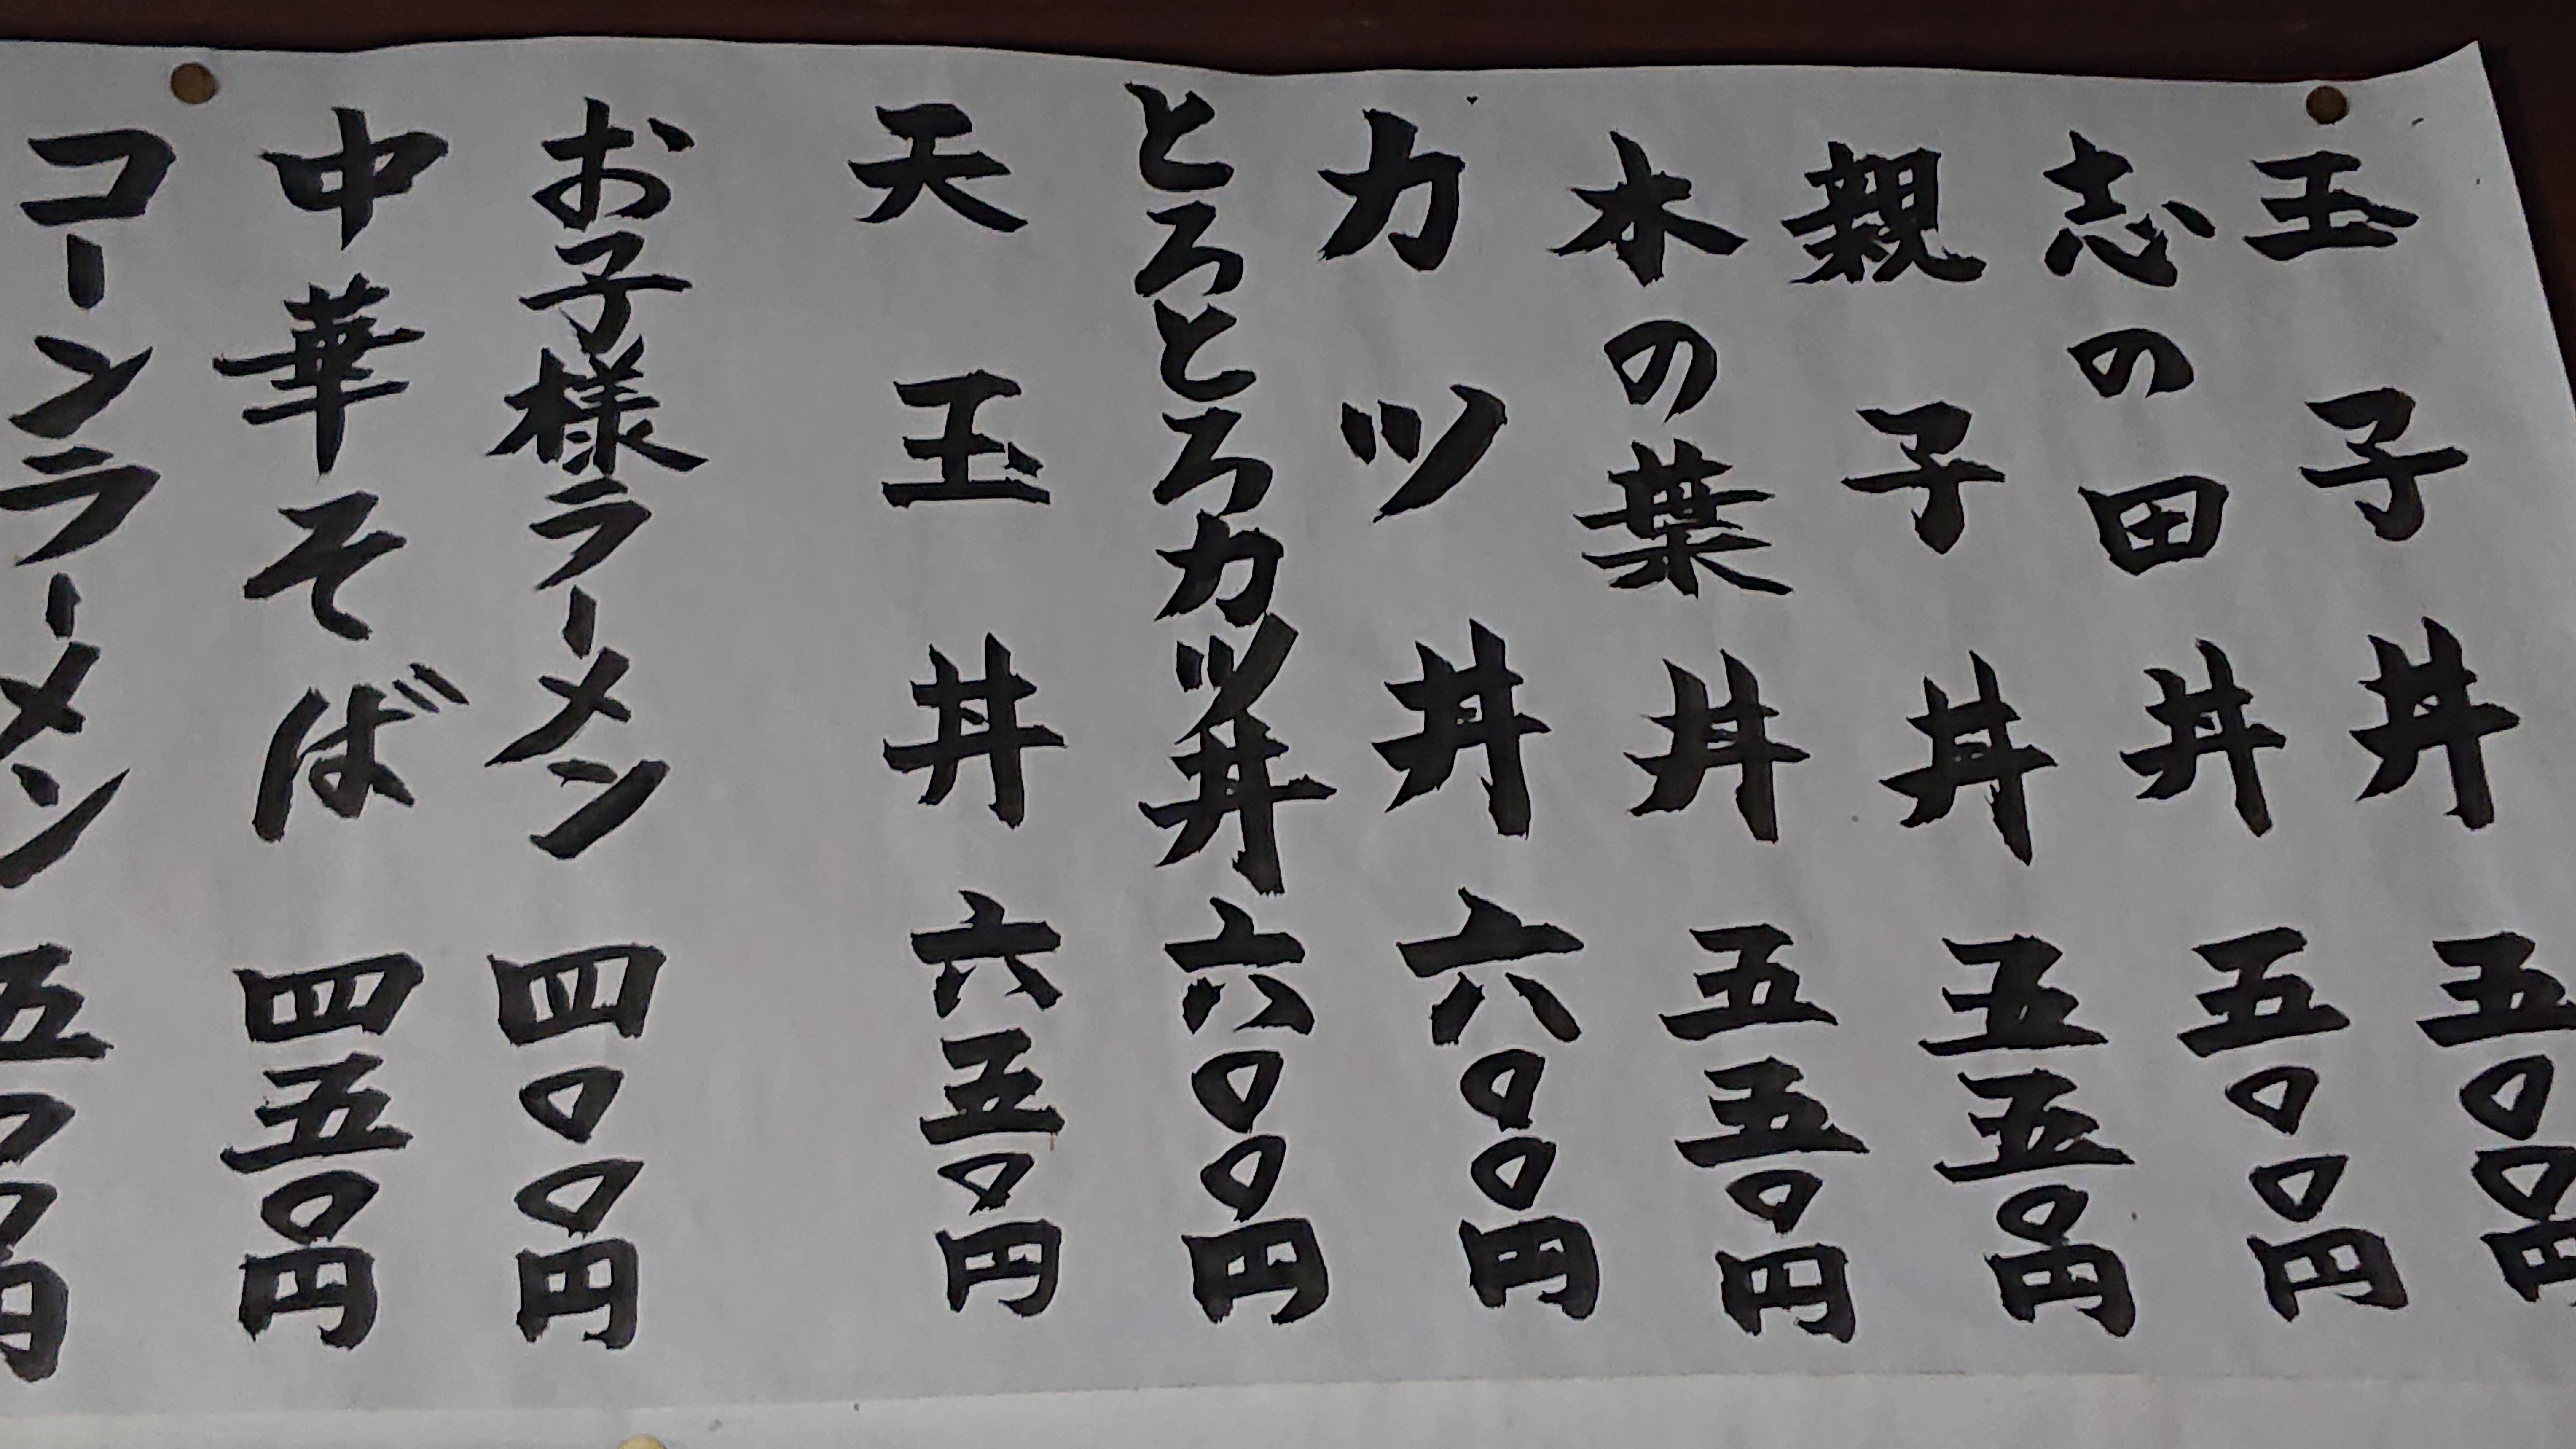 玉子丼 五〇〇円
志の田丼 五〇〇円
親子丼 五五〇円
木の葉丼 五五〇円
カツ丼 六〇〇円
とろとろカツ丼 六〇〇円
天玉丼 六五〇円
お子様ラーメン 四〇〇円
中華そば 四五〇円
コーンラーメン 五〇〇円